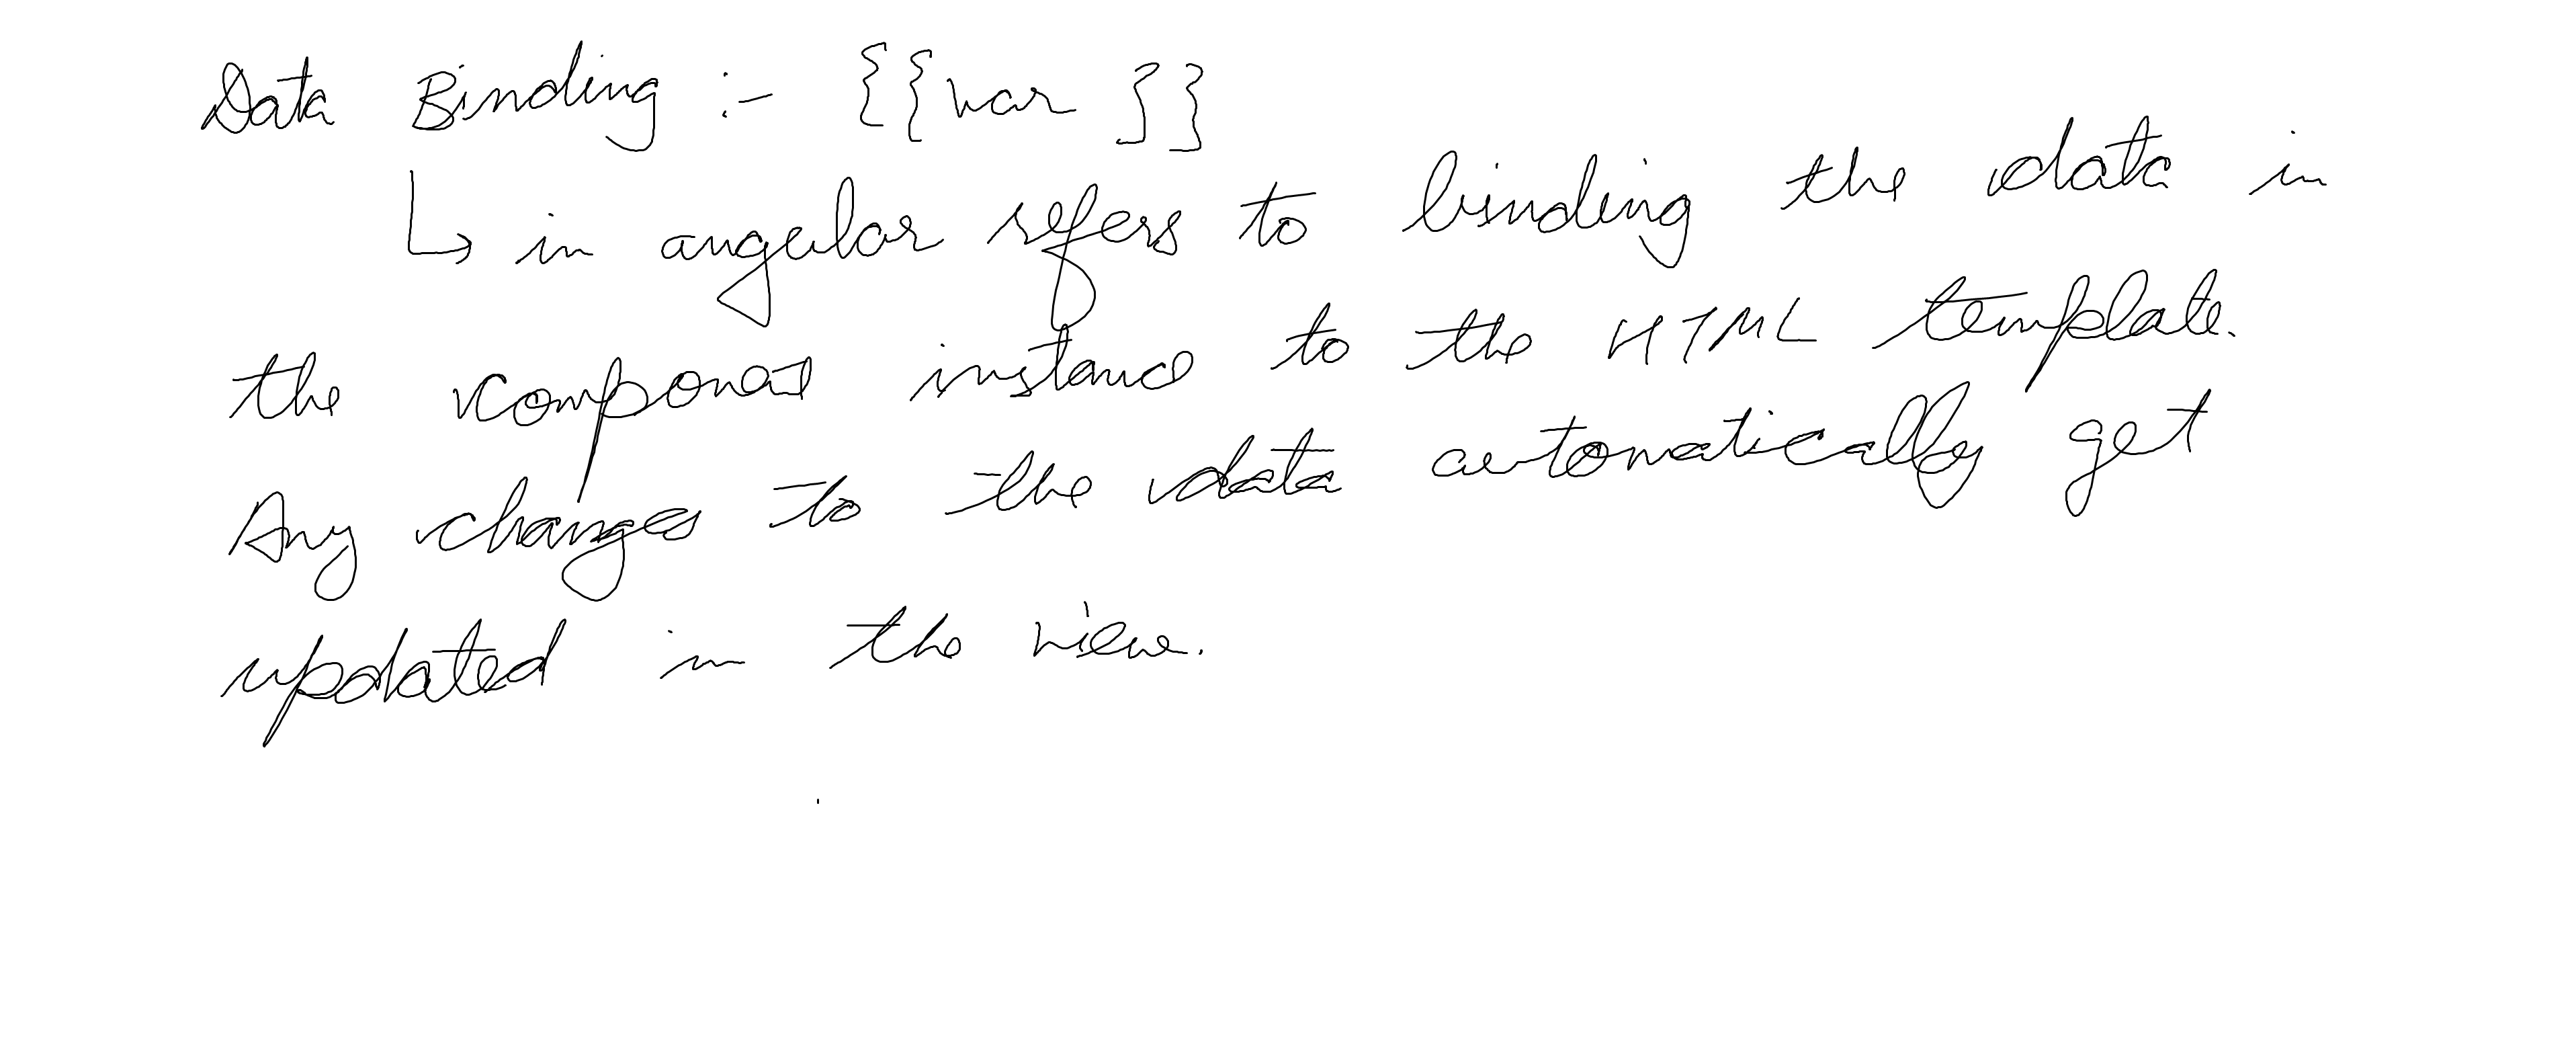 Data Binding :- {{var}}
↳ in angular refers to binding the data in
the component instance to the HTML template.
Any changes to the data automatically get
updated in the view.